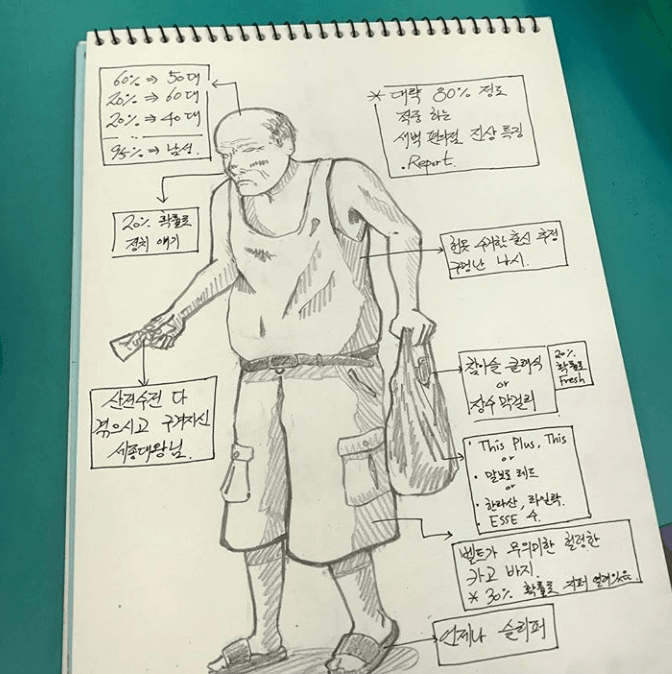 60% ⇒ 50대
20% ⇒ 60대
20% ⇒ 40대
95% ⇒ 남성.
* 대략 80% 정도
적중 하는
새벽 편의점 진상 특징
. Report.
20% 확률로
정치 얘기
헌옷 수거함 출신 추정
구멍난 난시.
산전수전 다
겪으시고 구겨지신
세종대왕님.
참이슬 클래식
or
장수 막걸리
20%
확률로
Fresh
· This Plus, This
or
· 말보로 레드
or
· 한라산, 라일락.
· ESSE 4.
벨트가 무의미한 헐렁한
카고 바지.
* 30% 확률로 지퍼 열려있음.
언제나 슬리퍼